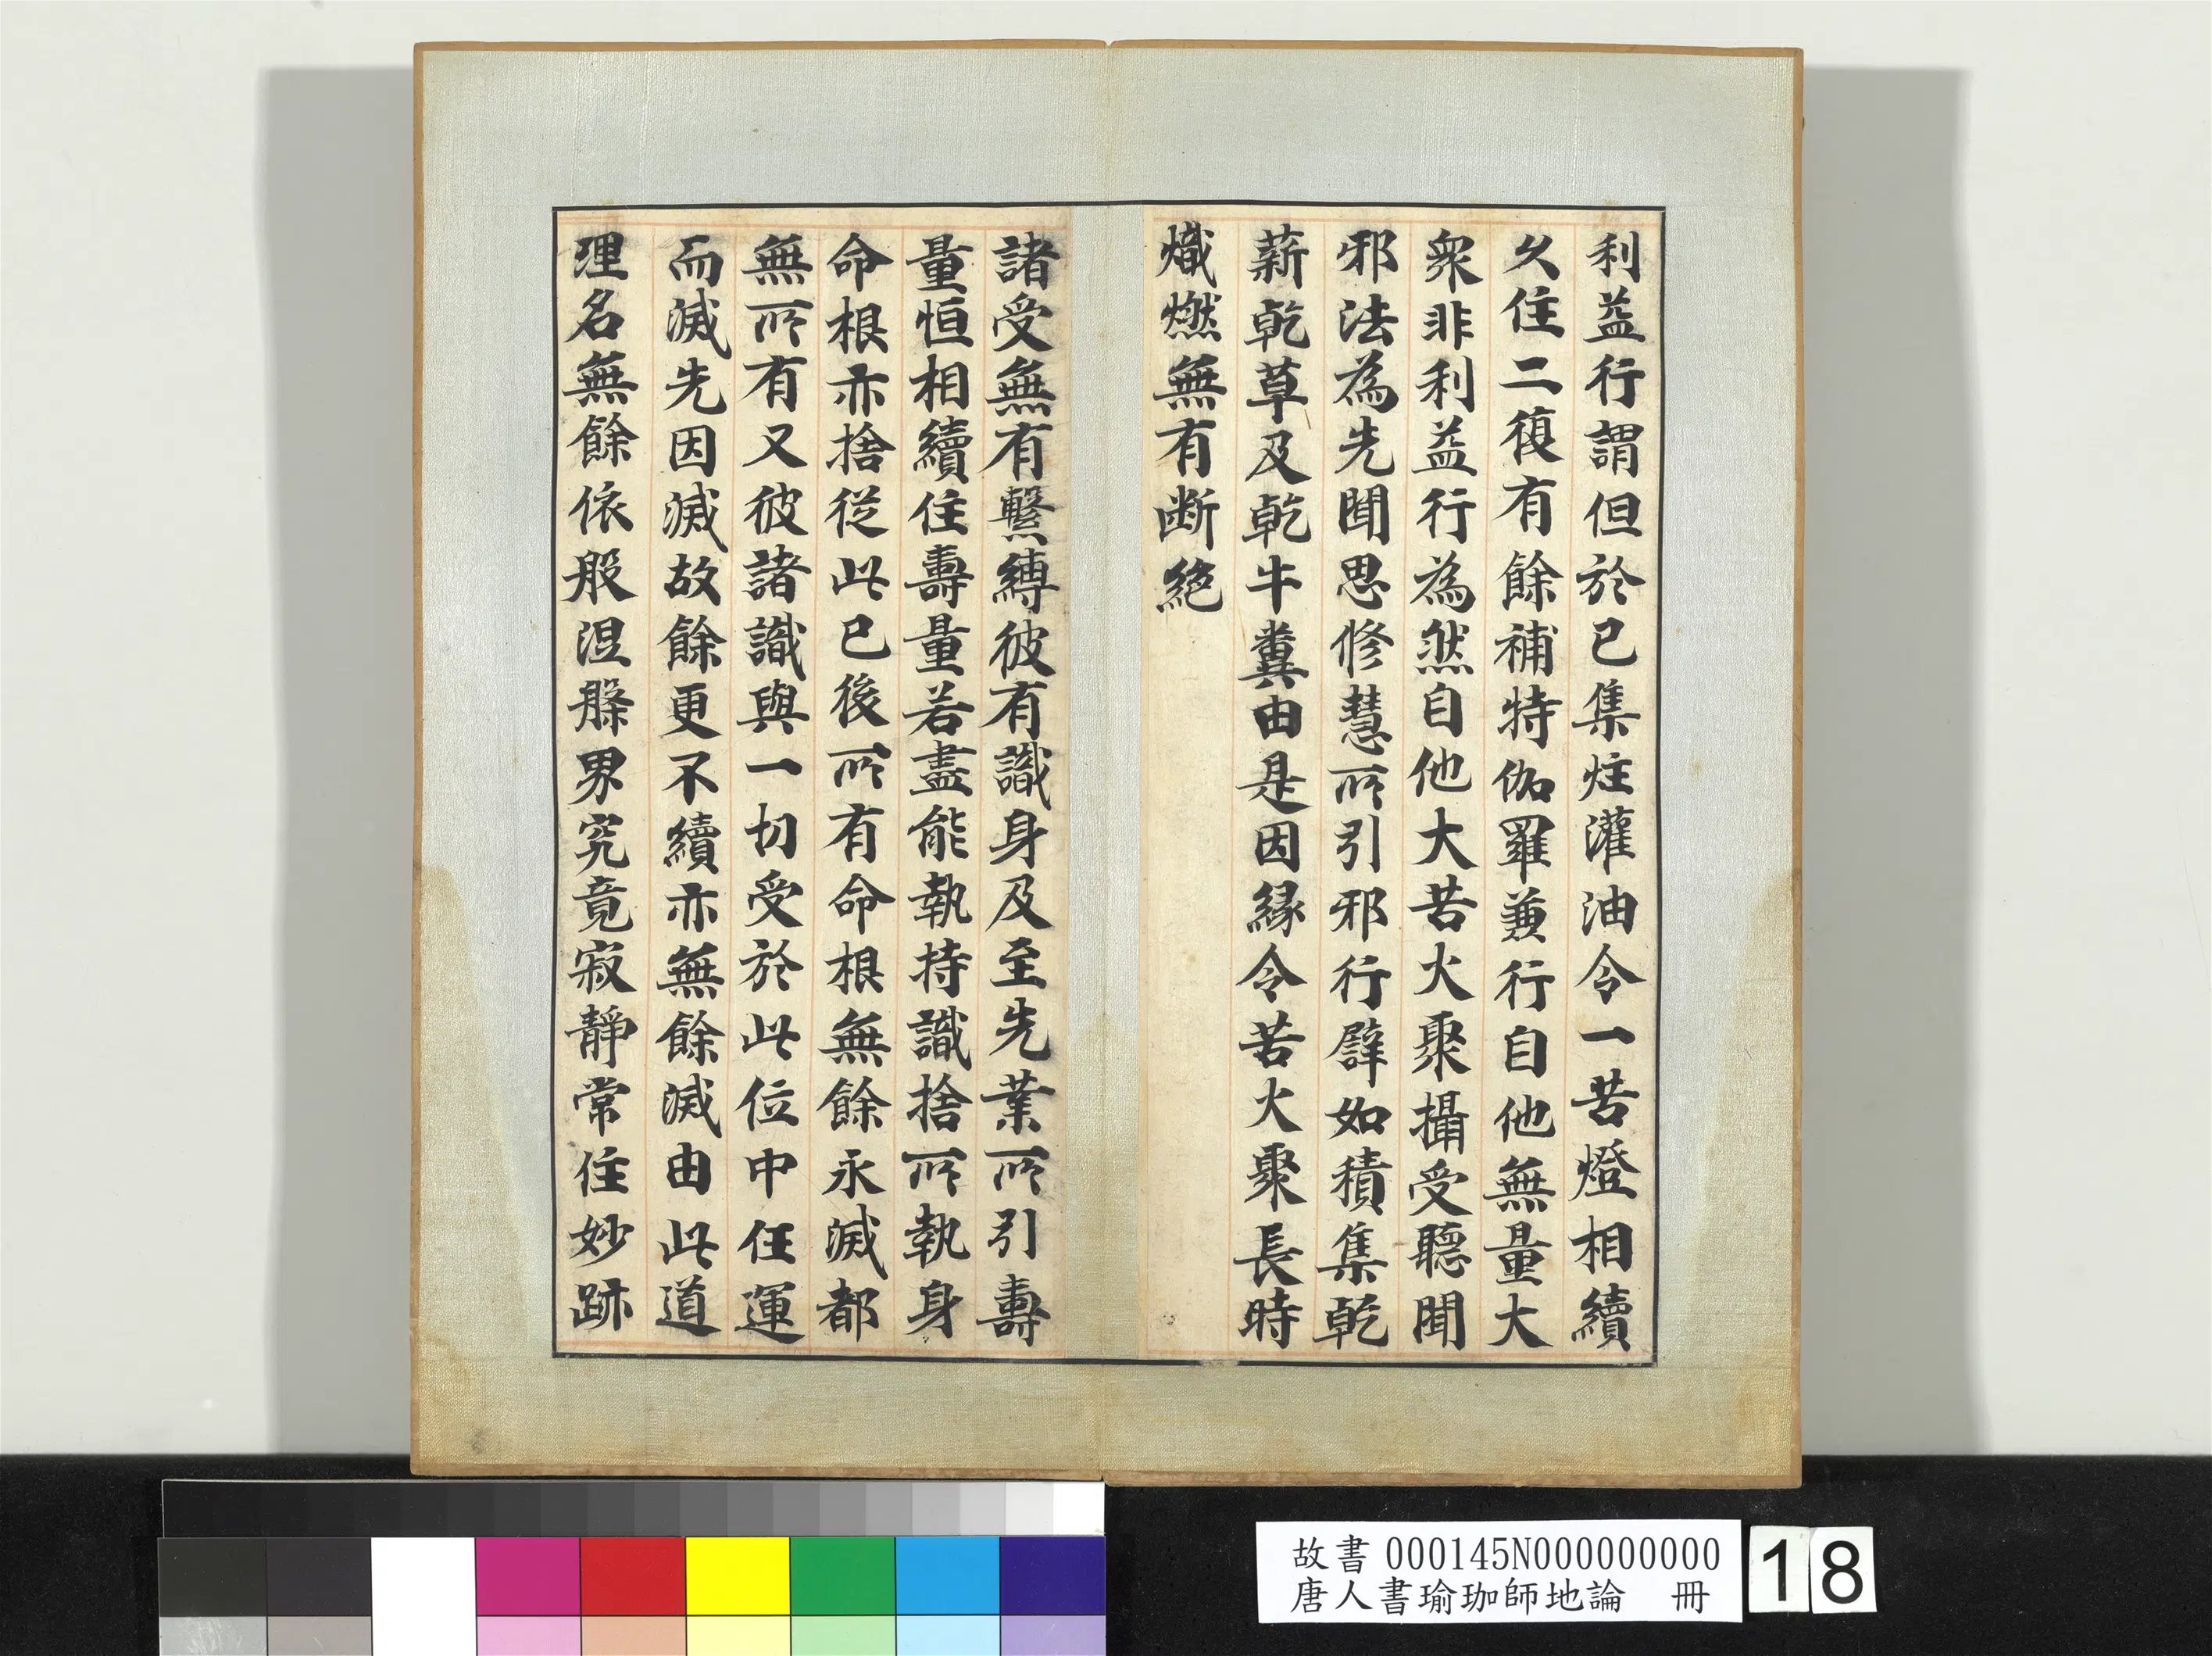 利益行謂但於已集炷灌油令一苦燈相續
久住二復有餘補特伽羅兼行自他無量大
衆非利益行為然自他大苦火聚攝受聽聞
邪法為先聞思修慧所引邪行譬如積集乾
薪乾草及乾牛糞由是因緣令苦火聚長時
熾燃無有断絕
諸受無有繫縛彼有識身及至先業所引壽
量恒相續住壽量若盡能執持識捨所執身
命根亦捨從此已後所有命根無餘永滅都
無所有又彼諸識與一切受於此位中任運
而滅先因滅故餘更不續亦無餘滅由此道
理名無餘依般涅槃界究竟寂靜常住妙跡
故書 000145N000000000
唐人書瑜珈師地論 冊
18